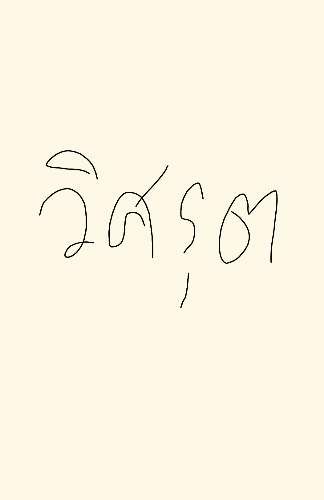 วิศรุต